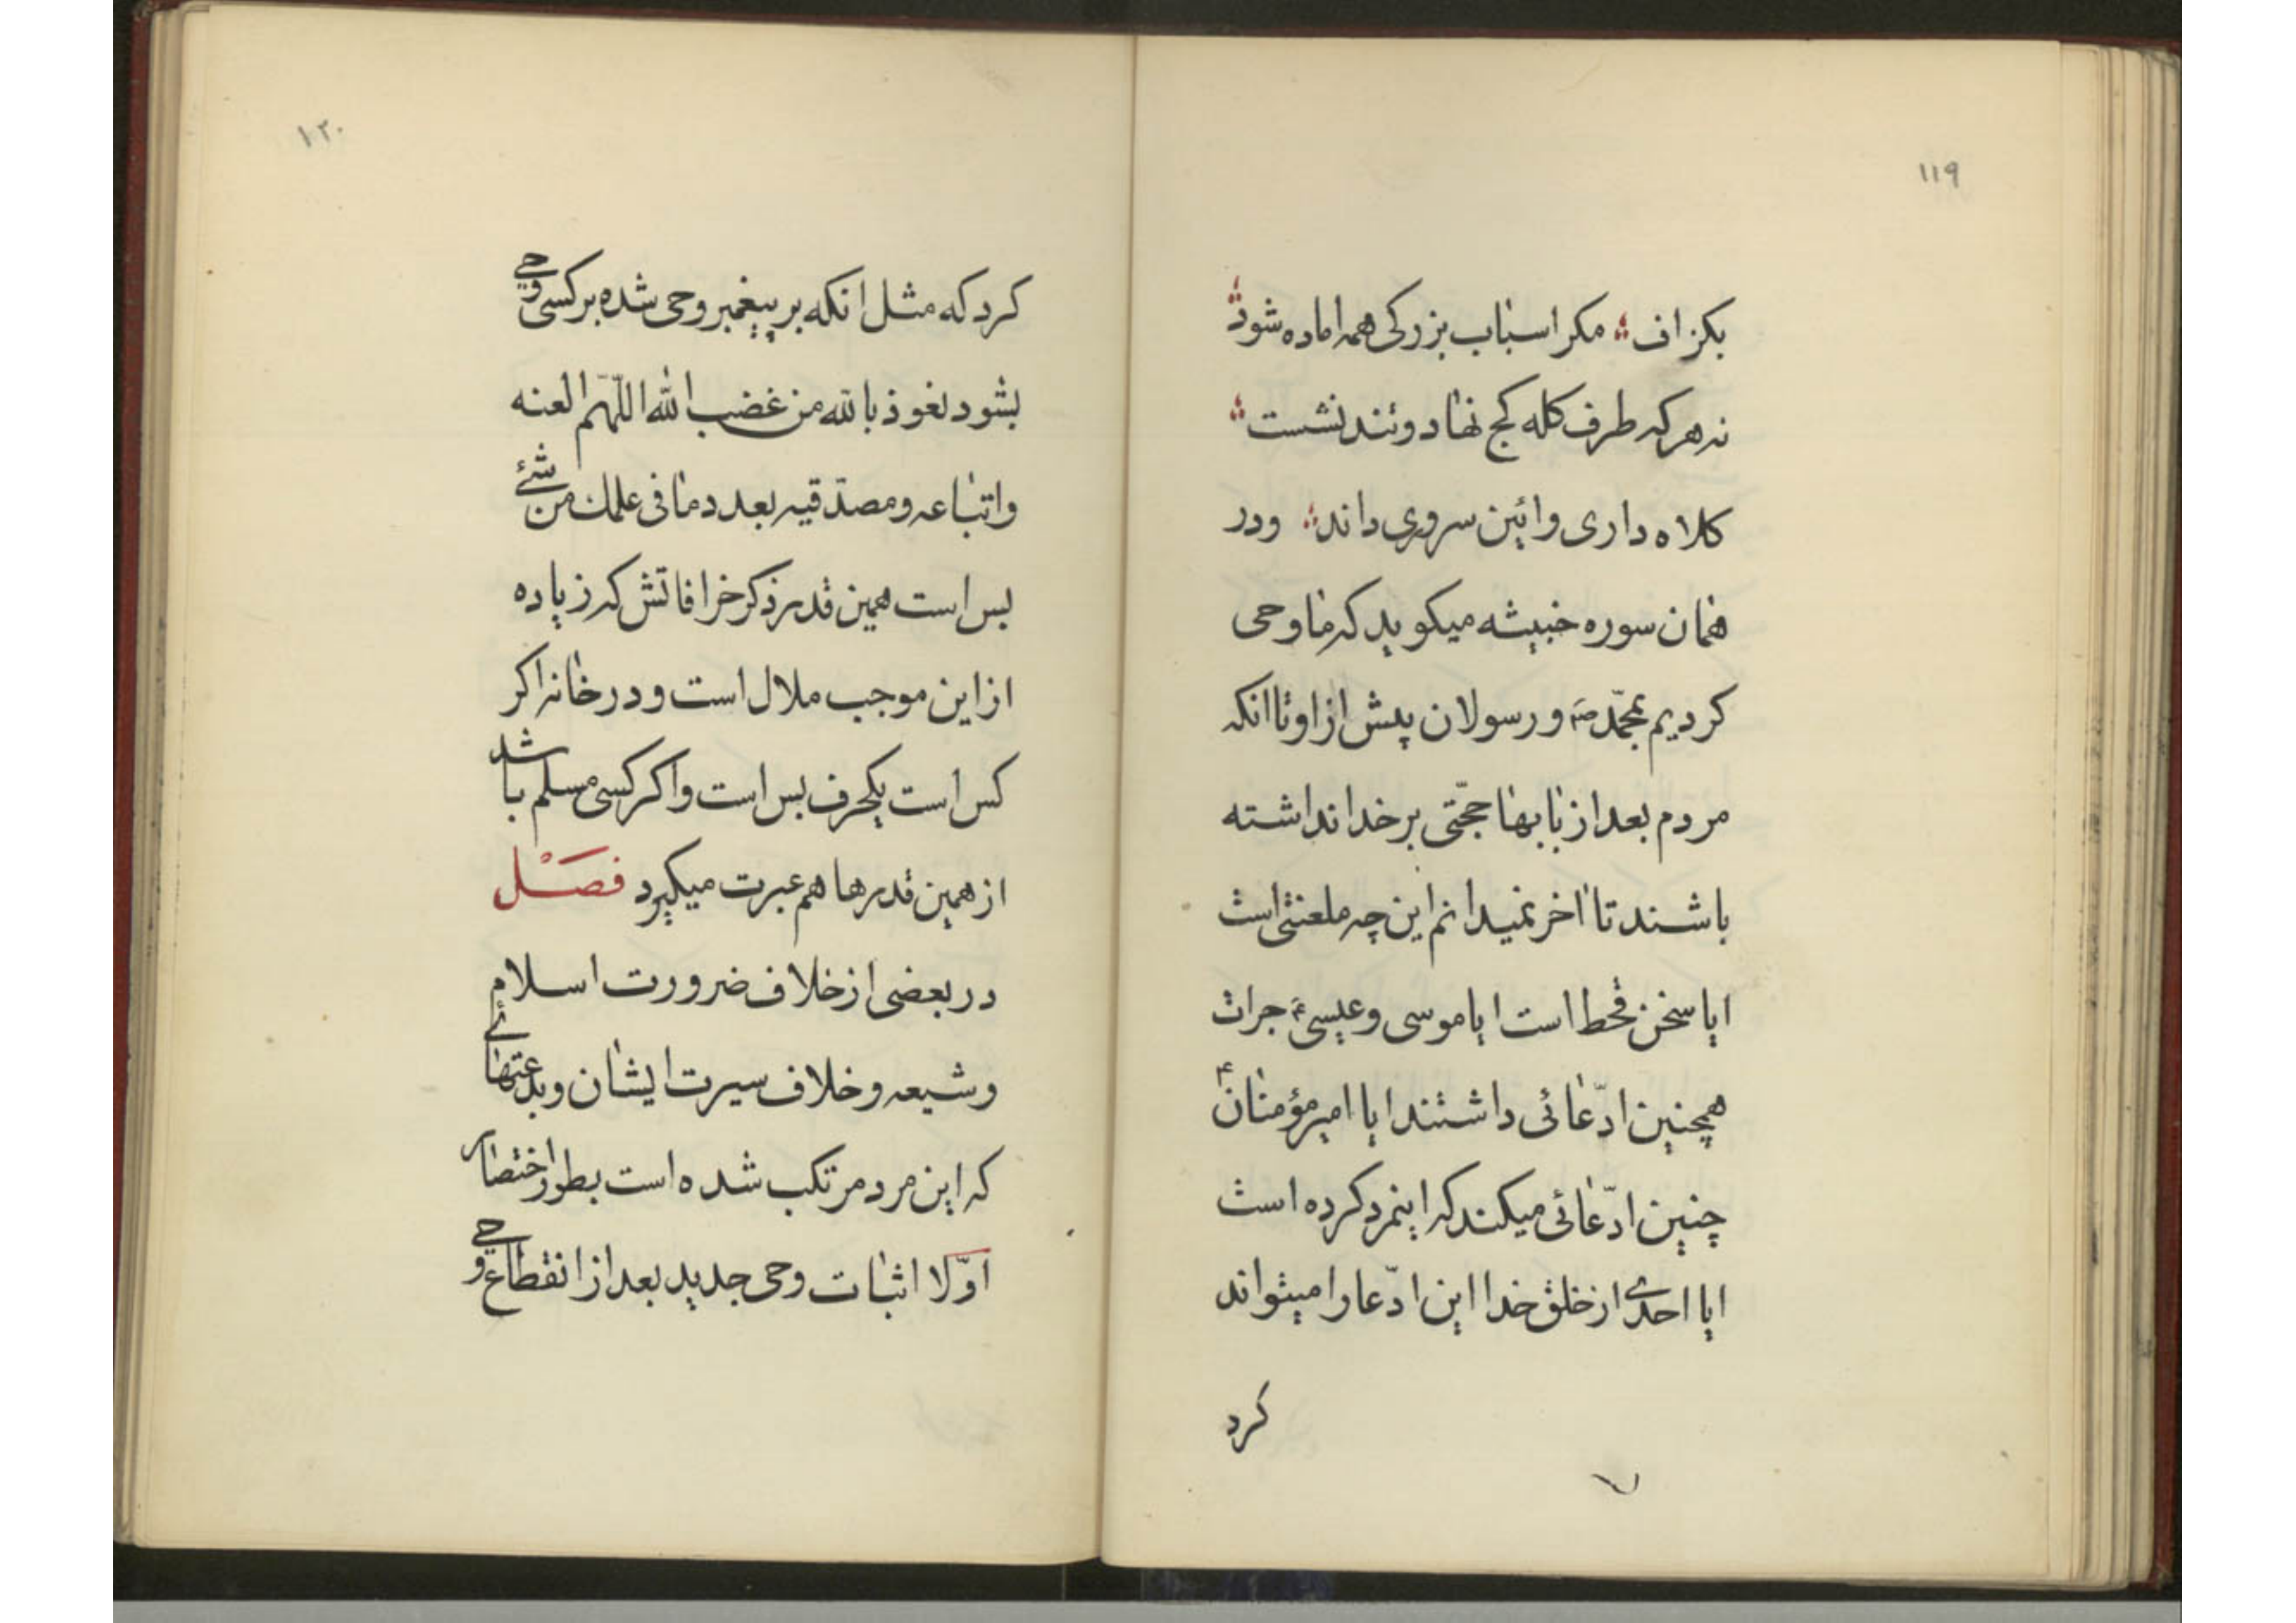 ۱۱۹
بکزاف ؛ مکر اسباب بزرکی همه اماده شود ؛
نه هر که طرف کله کج نهاد و تند نشست ؛
کلاه داری و ائین سروری داند ؛ و در
همان سوره خبیثه میکوید که ما وحی
کردیم بمحمّد ص و رسولان پیش از او تا انکه
مردم بعد از بابها حجّتی بر خدا نداشته
باشند تا اخر نمیدانم این چه ملعنتی است
ایا سخن قحط است ایا موسی و عیسی ع جرات
همچنین ادّعائی داشتند ایا امیر مؤمنان ع
چنین ادّعائی میکند که اینمرد کرده است
ایا احدی از خلق خدا این ادّعا را میتواند
کرد
۱۲۰
کرد که مثل انکه بر پیغمبر وحی شده بر کسی وحی
بشود نعوذ بالله من غضب الله اللّهم العنه
و اتباعه و مصدّقیه بعدد ما فی علمک من شئ
بس است همین قدر ذکر خرافاتش که زیاده
از این موجب ملال است و در خانه اکر
کس است یکحرف بس است و اکر کسی مسلم باشد
از همین قدرها هم عبرت میکیرد فصل
در بعضی از خلاف ضرورت اسلام
و شیعه و خلاف سیرت ایشان و بدعتهائی
که این مرد مرتکب شده است بطور اختصار
اوّلا اثبات وحی جدید بعد از انقطاع وحی